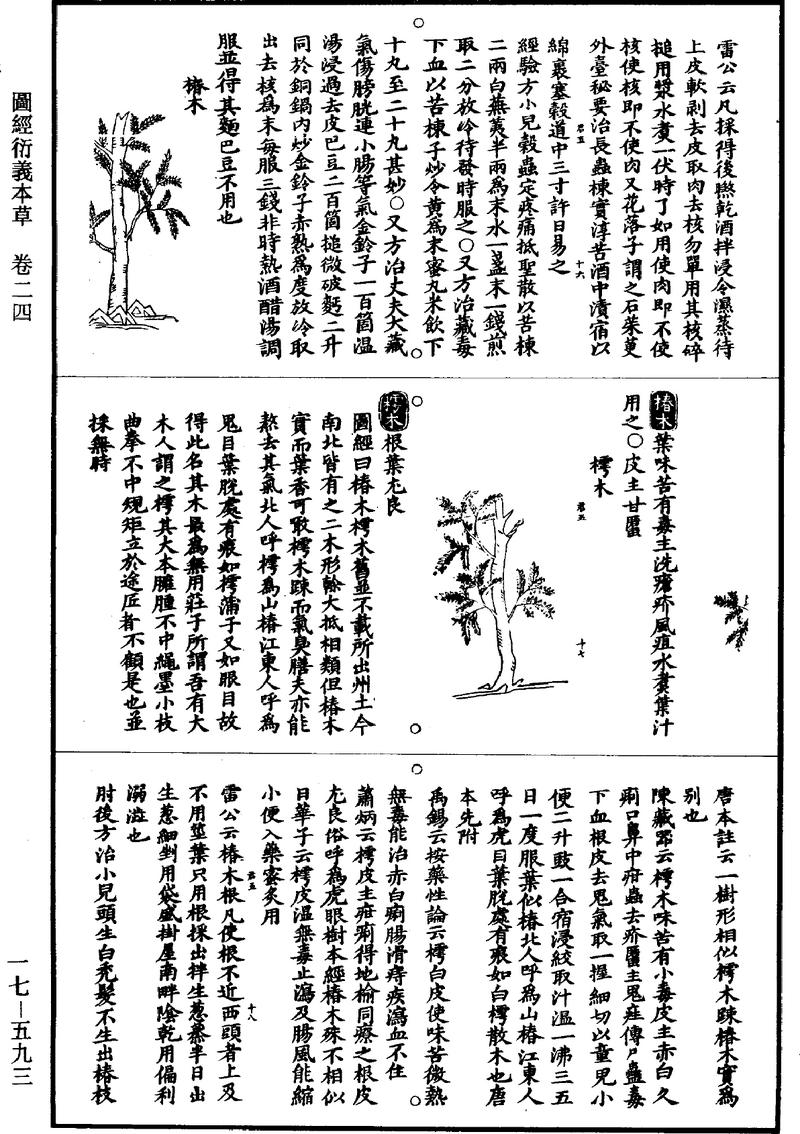 圖經衍義本草　卷二四
一七—五九三
雷公云凡採得後曬乾酒拌浸令濕蒸待
上皮軟剥去皮取肉去核勿單用其核碎
搥用漿水煑一伏時了如用使肉即不使
核使核即不使肉又花落子謂之石茱萸
外臺秘要治長蟲楝實淳苦酒中漬宿以
綿裹塞榖道中三寸許日易之
經驗方小兒榖蟲定疼痛抵聖散以苦楝
二兩白蕪荑半兩爲末水一盞末一錢煎
取二分放冷待發時服之○又方治藏毒
下血以苦楝子炒令黄爲末蜜丸米飲下
十丸至二十丸甚妙○又方治丈夫大藏
氣傷膀胱連小腸等氣金鈴子一百箇温
湯浸過去皮巴豆二百箇搥微破麪二升
同於銅鍋内炒金鈴子赤熟爲度放冷取
出去核爲末每服三錢非時熱酒醋湯調
服並得其麵巴豆不用也
椿木
十六
椿木葉味苦有毒主洗瘡疥風疽水煑葉汁
用之○皮主甘䘌
樗木
十七
樗木根葉尤良
圖經曰椿木樗木舊並不載所出州土今
南北皆有之二木形榦大抵相類但椿木
實而葉香可噉樗木踈而氣臭膳夫亦能
熬去其氣北人呼樗爲山椿江東人呼爲
鬼目葉脱處有痕如樗蒲子又如眼目故
得此名其木最爲無用莊子所謂吾有大
木人謂之樗其大本臃腫不中繩墨小枝
曲拳不中規矩立於途匠者不顧是也並
採無時
唐本註云一樹形相似樗木踈椿木實爲
别也
陳藏器云樗木味苦有小毒皮主赤白久
痢口鼻中疳蟲去疥䘌主鬼疰傳尸蠱毒
下血根皮去鬼氣取一握細切以童兒小
便二升豉一合宿浸絞取汁温一沸三五
日一度服葉似椿北人呼爲山椿江東人
呼爲虎目葉脱處有痕如白樗散木也唐
本先附
禹錫云按藥性論云樗白皮使味苦微熱
無毒能治赤白痢腸滑痔疾瀉血不住
蕭炳云樗皮主疳痢得地榆同療之根皮
尤良俗呼爲虎眼樹本經椿木殊不相似
日華子云樗皮温無毒止瀉及腸風能縮
小便入藥蜜炙用
雷公云椿木根凡使根不近西頭者上及
不用莖葉只用根採出拌生葱蒸半日出
生葱細剉用袋盛掛屋南畔陰乾用偏利
溺澁也
肘後方治小兒頭生白禿髮不生出椿枝
十八